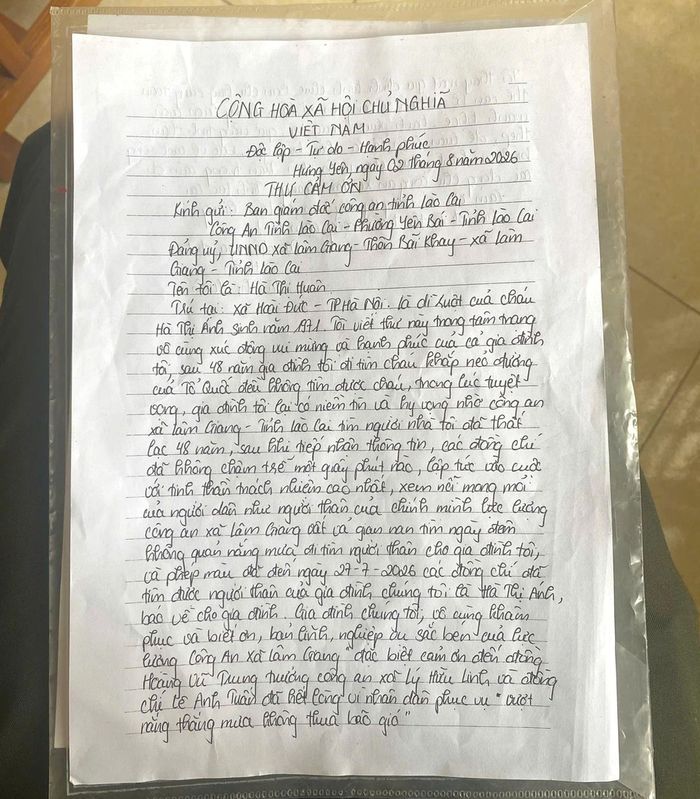 CÔNG HÒA XÃ HỘI CHỦ NGHĨA
VIỆT NAM
Độc lập - Tự do - Hạnh phúc
Hưng Yên, ngày 02 tháng 8 năm 2026
THƯ CẢM ƠN
Kính gửi: Ban giám đốc công an tỉnh lào Cai
Công An Tỉnh lào Cai - Phường Yên Bái - Tỉnh lào Cai
Đảng uỷ, UNND xã lâm Giang - Thôn Bãi Khay - xã lâm
Giang - Tỉnh lào Cai
Tên tôi là: Hà Thị Huân
Trú tại: xã Hoài Đức - TP Hà Nội. là dì ruột của cháu
Hà Thị Ánh sinh năm 1971. Tôi viết thư này trong tâm trạng
vô cùng xúc động vui mừng và hạnh phúc của cả gia đình
tôi, sau 48 năm gia đình tôi đi tìm cháu khắp nẻo đường
của Tổ Quốc đều không tìm được cháu, trong lúc tuyệt
vọng, gia đình tôi lại có niềm tin và hy vọng nhờ công an
xã lâm Giang - Tỉnh lào Cai tìm người nhà tôi đã thất
lạc 48 năm, sau khi tiếp nhận thông tin, các đồng chí
đã không chậm trễ một giây phút nào, lập tức vào cuộc
với tinh thần trách nhiệm cao nhất, xem nỗi mong mỏi
của người dân như người thân của chính mình lực lượng
công an xã lâm Giang vất vả gian nan tìm ngày đêm
không quản nắng mưa đi tìm người thân cho gia đình tôi,
và phép màu đã đến ngày 27-7-2026 các đồng chí đã
tìm được người thân của gia đình chúng tôi là Hà Thị Ánh,
báo về cho gia đình. Gia đình chúng tôi, vô cùng khâm
phục và biết ơn, bản lĩnh, nghiệp vụ sắc bén của lực
lượng Công An xã lâm Giang "đặc biệt cảm ơn đến đồng
Hoàng Vũ Trung trưởng công an xã Lý Hữu Linh, và đồng
chí Lê Anh Tuấn đã hết lòng vì nhân dân phục vụ "vượt
nắng thắng mưa không thua bão gió"